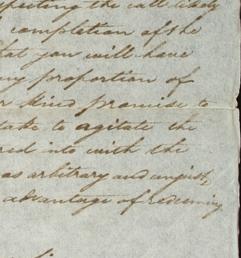 pecting the call likely
completion of the
that you will have
any proportion of
r kind promise to
take to agitate the
red into with the
as arbitrary and unjust,
advantage of redeeming